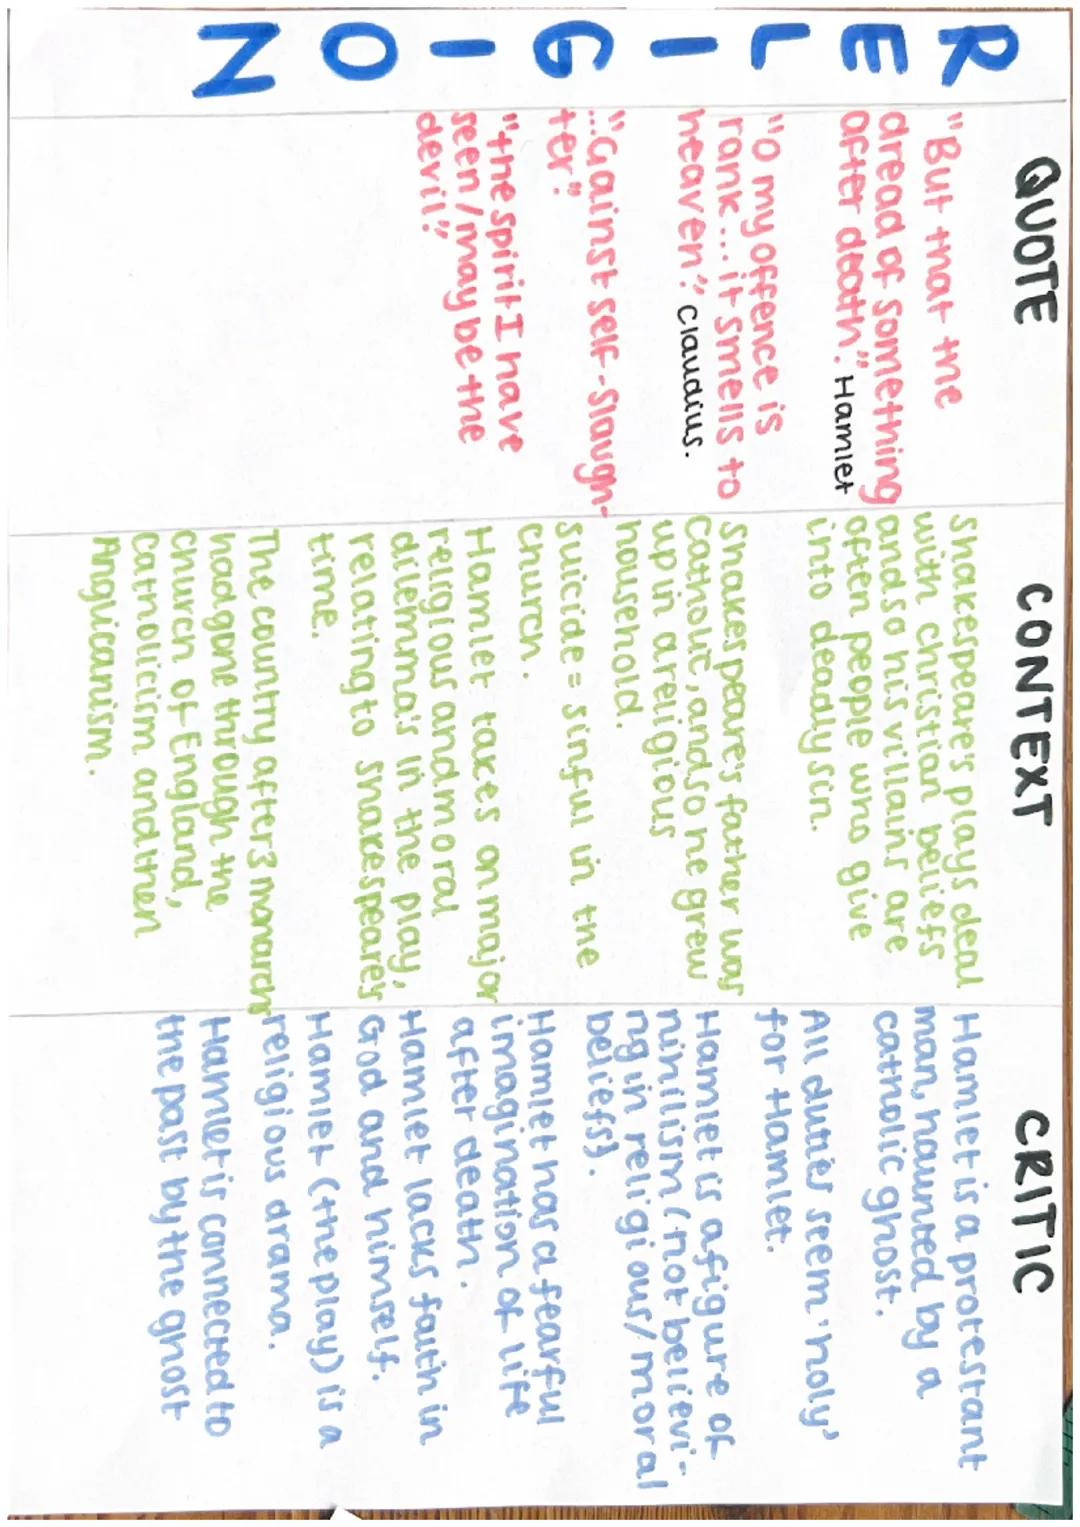 RELIGION
QUOTE
"But that the
dread of something
after death". Hamlet
"O my offence is
rank... it smells to
heaven". Claudius.
"...Gainst self-slaugh-
ter".
"the spirit I have
seen / may be the
devil".
CONTEXT
Shakespeare's plays deal
with christian beliefs
and so his villains are
often people who give
into deadly sin.
Shakespeare's father was
catholic, and so he grew
up in a religious
household.
suicide = sinful in the
church.
Hamlet takes on major
religious and moral
dilemma's in the play,
relating to shakespeare's
time.
The country after 3 monarchs
had gone through the
church of England,
catholicism and then
Anglicanism.
CRITIC
Hamlet is a protestant
man, haunted by a
catholic ghost.
All duties seem 'holy'
for Hamlet.
Hamlet is a figure of
nihilism (not believi-
ng in religious/moral
beliefs).
Hamlet has a fearful
imagination of life
after death.
Hamlet lacks faith in
God and himself.
Hamlet (the play) is a
religious drama.
Hamlet is connected to
the past by the ghost